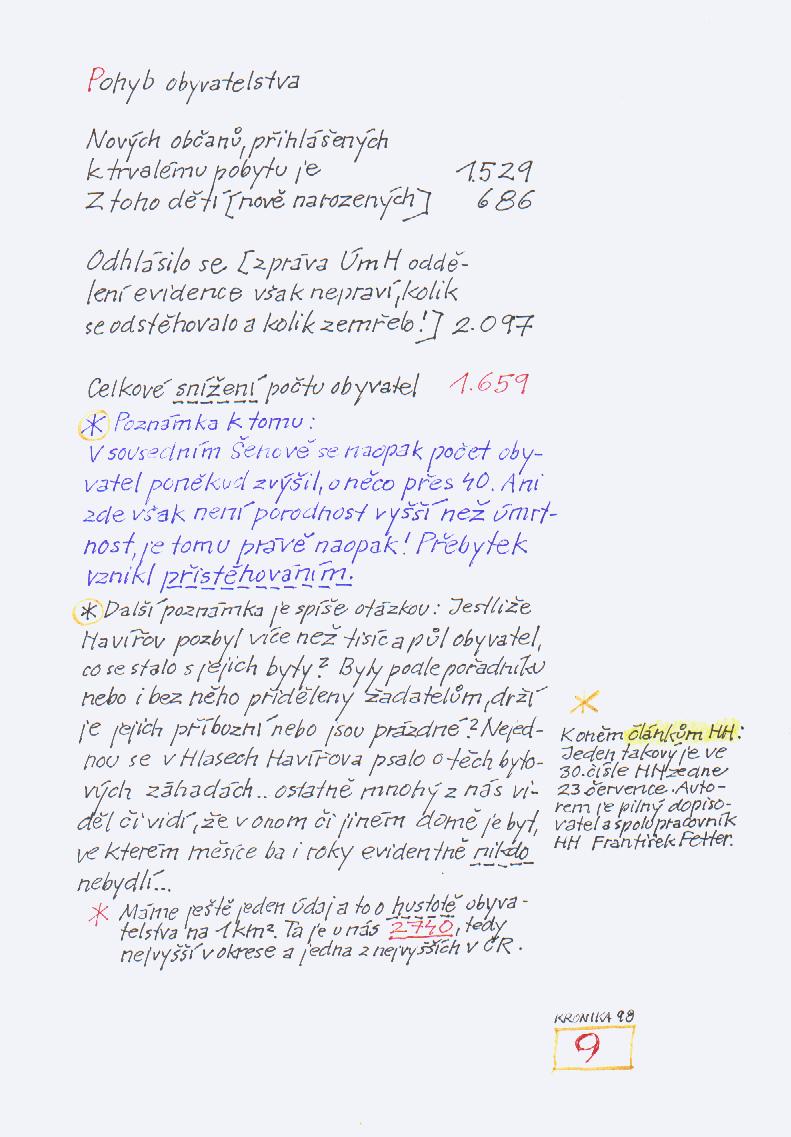 Pohyb obyvatelstva
Nových občanů, přihlášených
k trvalému pobytu je 1.529
Z toho dětí [nově narozených] 686
Odhlásilo se [zpráva ÚmH oddě-
lení evidence však nepraví, kolik
se odstěhovalo a kolik zemřelo!] 2.097
Celkové snížení počtu obyvatel 1.659
* Poznámka k tomu:
V sousedním Šenově se naopak počet oby-
vatel poněkud zvýšil, o něco přes 40. Ani
zde však není porodnost vyšší než úmrt-
nost, je tomu právě naopak! Přebytek
vznikl přistěhováním.
* Další poznámka je spíše otázkou: Jestliže
Havířov pozbyl více než tisíc a půl obyvatel,
co se stalo s jejich byty? Byly podle pořadníku
nebo i bez něho přiděleny žadatelům, drží
je jejich příbuzní nebo jsou prázdné? Nejed-
nou se v Hlasech Havířova psalo o těch byto-
vých záhadách.. ostatně mnohý z nás vi-
děl či vidí, že v onom či jiném domě je byt,
ve kterém měsíce ba i roky evidentně nikdo
nebydlí...
* Máme ještě jeden údaj a to o hustotě obyva-
telstva na 1 km². Ta je u nás 2740, tedy
nejvyšší v okrese a jedna z nejvyšších v ČR.
*
K oněm článkům HH:
Jeden takový je ve
30. čísle HH ze dne
23 července. Auto-
rem je pilný dopiso-
vatel a spolupracovník
HH František Fetter.
KRONIKA 98
9